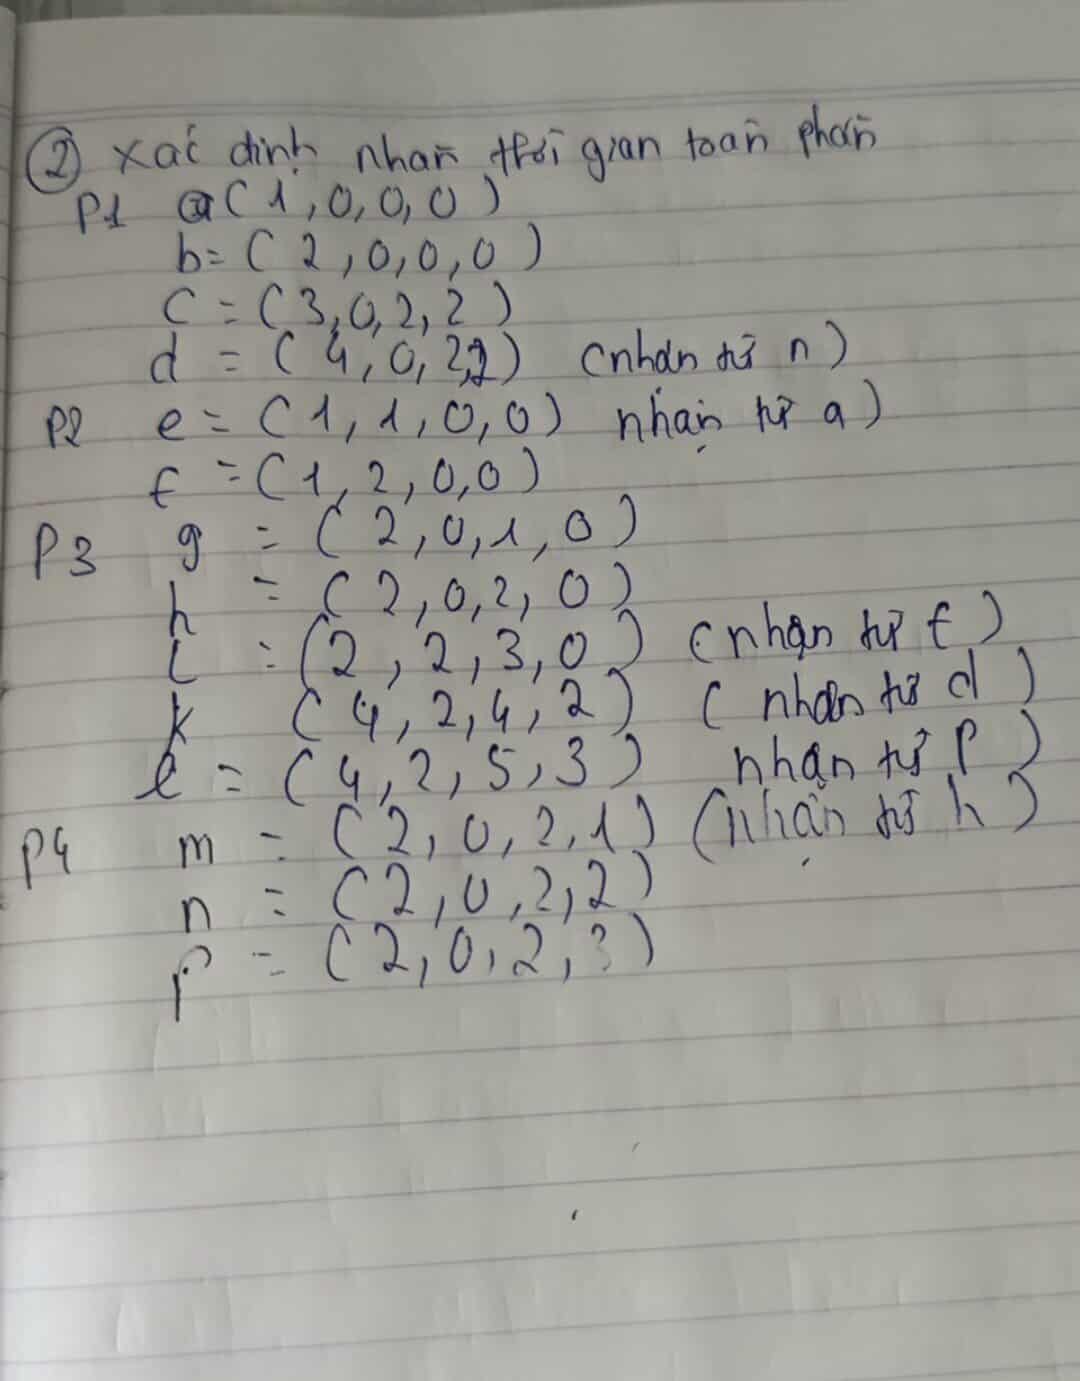 ② Xác định nhãn thời gian toàn phần
P1 a(1,0,0,0)
b=(2,0,0,0)
c=(3,0,2,2)
d=(4,0,2,2) (nhận từ n)
P2 e=(1,1,0,0) nhận từ a)
f=(1,2,0,0)
P3 g=(2,0,1,0)
h=(2,0,2,0)
i=(2,2,3,0) (nhận từ f)
k (4,2,4,2) (nhận từ d)
l=(4,2,5,3) nhận từ p)
P4 m=(2,0,2,1) (nhận từ h)
n=(2,0,2,2)
p=(2,0,2,3)